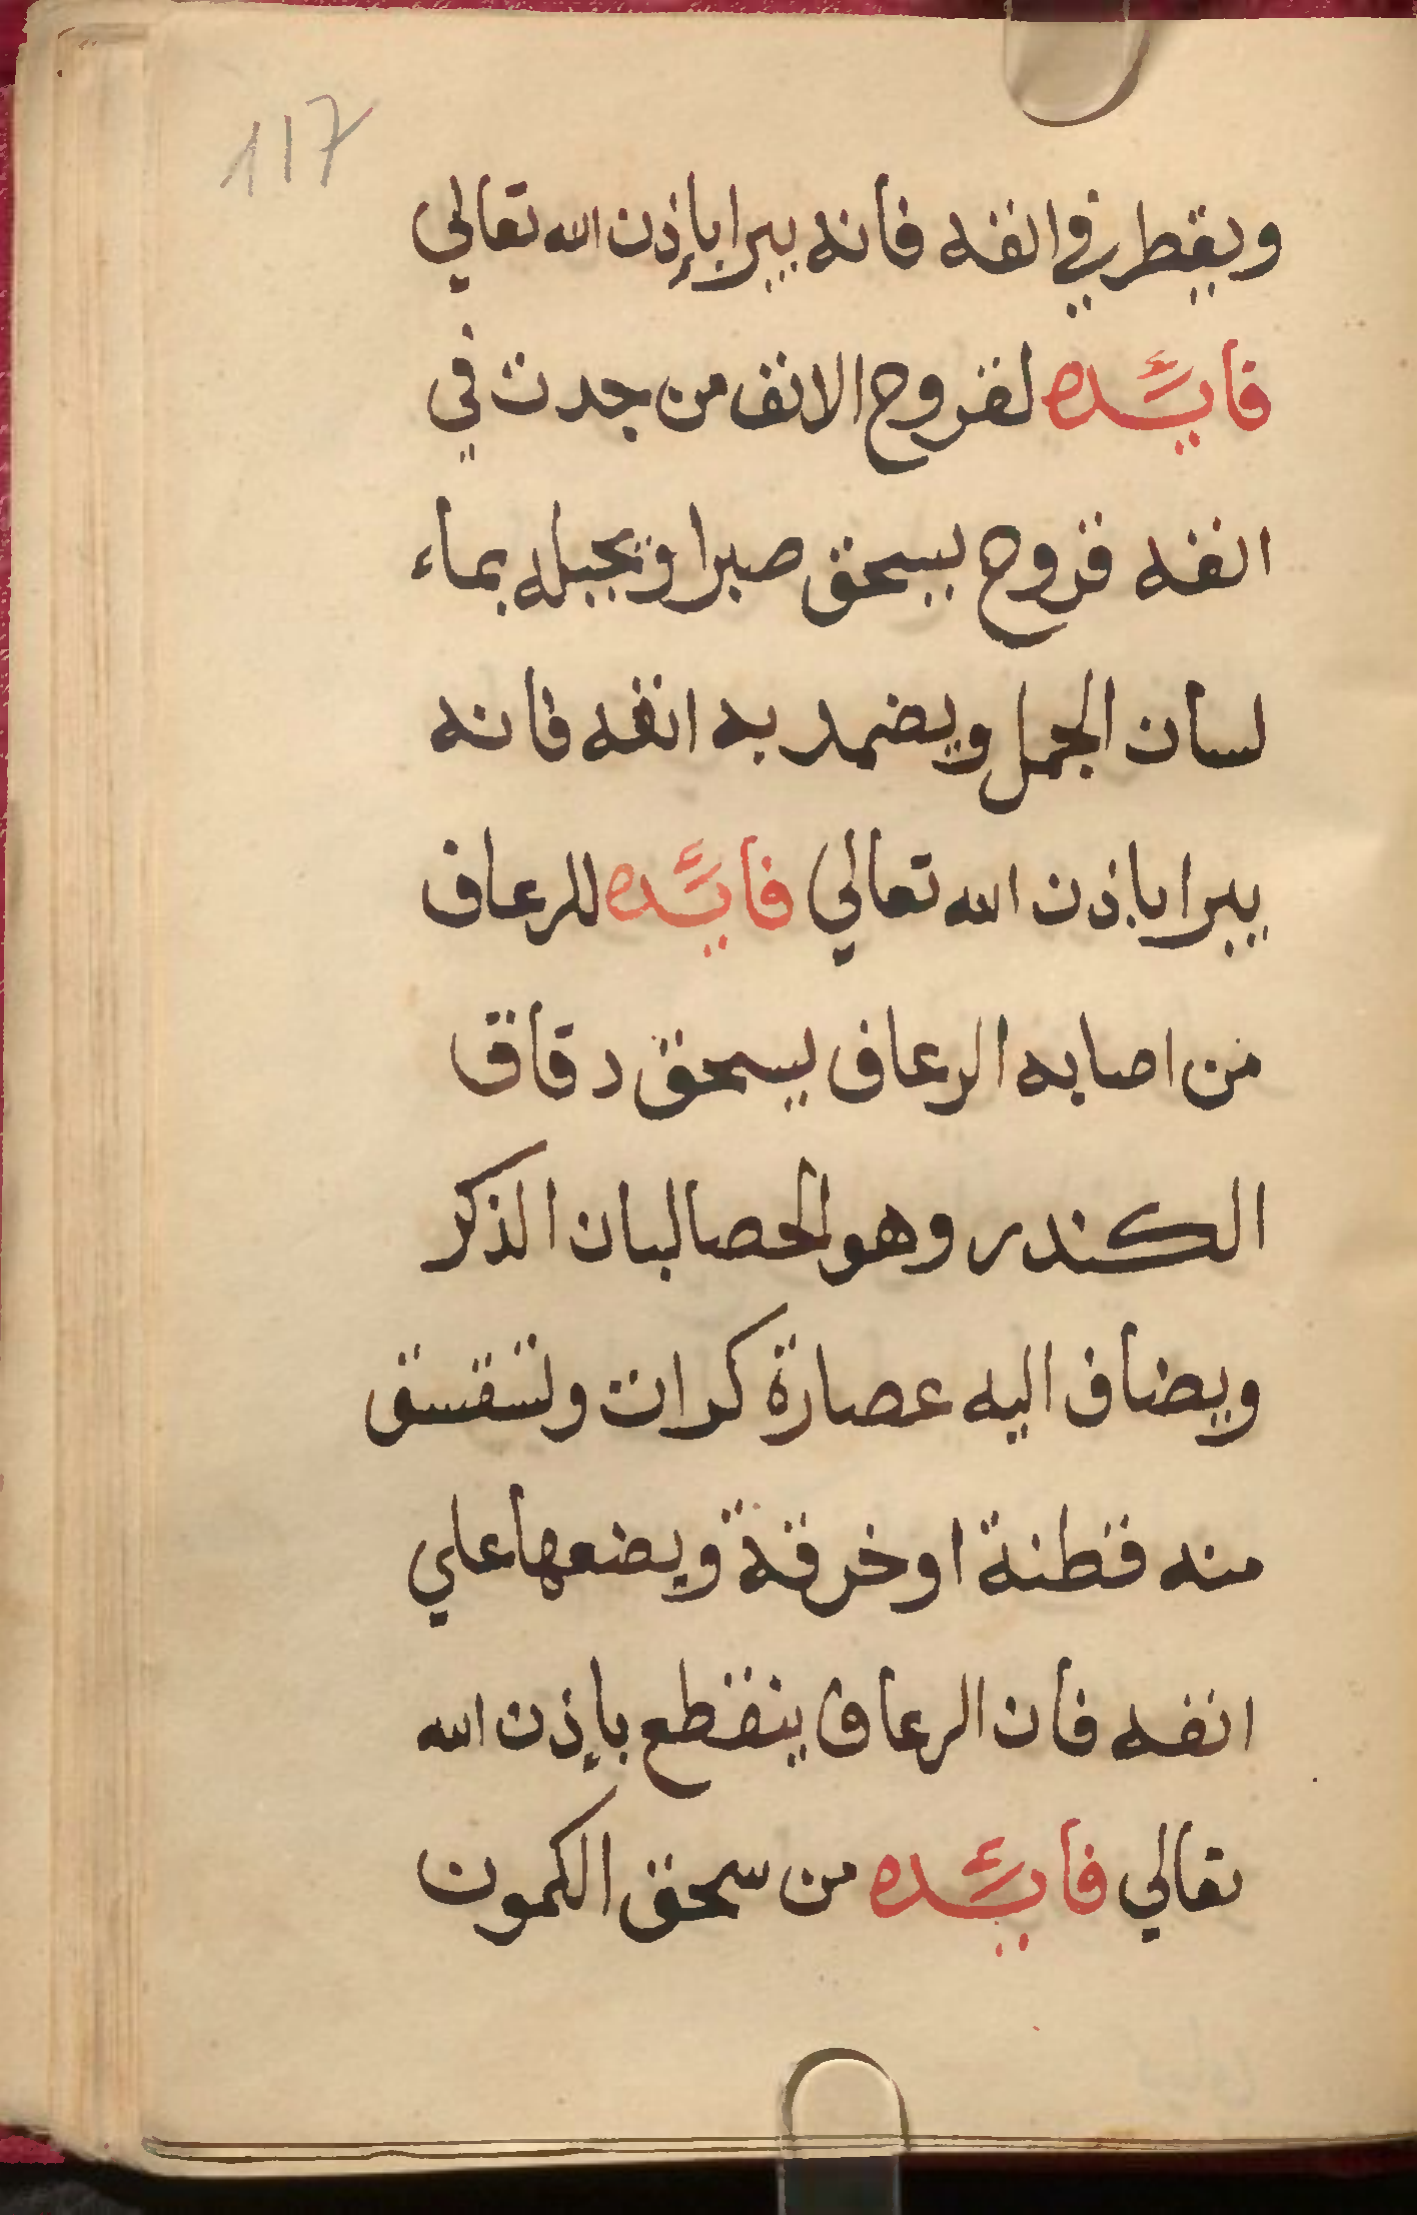 117
ويقطر في انفه فانه يبرا بإذن الله تعالي
فايده لقروح الانف من جدث في
انفه قروح يسحق صبرا ويجبله بماء
لسان الجمل ويضمد به انفه فانه
يبرا باذن الله تعالي فايده للرعاف
من اصابه الرعاف يسحق دقاق
الكندر وهو الحصالبان الذكر
ويضاف اليه عصارة كرات
منه قطنة او خرقة ويضعها علي
انفه فان الرعاف ينقطع بإذن الله
تعالي فايده من سحق الكمون